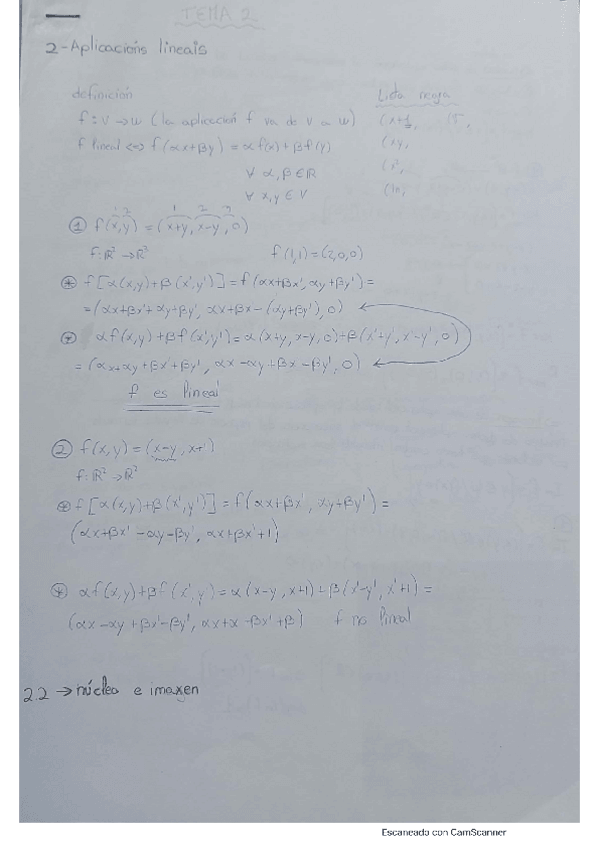 TEMA 2
2-Aplicacións lineais
definición
Lista negra
f: V → W (la aplicación f va de V a W)
(x+1,
f lineal ⟺ f(αx+βy) = αf(x)+βf(y)
(xy,
∀ α,β ∈ ℝ
(x²,
∀ x,y ∈ V
(ln,
① f(x,y) = (x+y, x-y, 0)
1 2
1 2 3
f: ℝ² → ℝ³
f(1,1) = (2,0,0)
⊛ f[α(x,y)+β(x',y')] = f(αx+βx', αy+βy') =
= (αx+βx'+αy+βy', αx+βx-(αy+βy'), 0)
αf(x,y)+βf(x',y') = α(x+y, x-y, 0)+β(x'+y', x'-y', 0)
= (αx+αy+βx'+βy', αx-αy+βx-βy', 0)
f es lineal
② f(x,y) = (x-y, x+1)
f: ℝ² → ℝ²
⊛ f[α(x,y)+β(x',y')] = f(αx+βx', αy+βy') =
(αx+βx'-αy-βy', αx+βx'+1)
⊛ αf(x,y)+βf(x',y) = α(x-y, x+1)+β(x'-y', x'+1) =
(αx-αy+βx'-βy', αx+α-βx'+β) f no lineal
2.2 → núcleo e imaxen
Escaneado con CamScanner